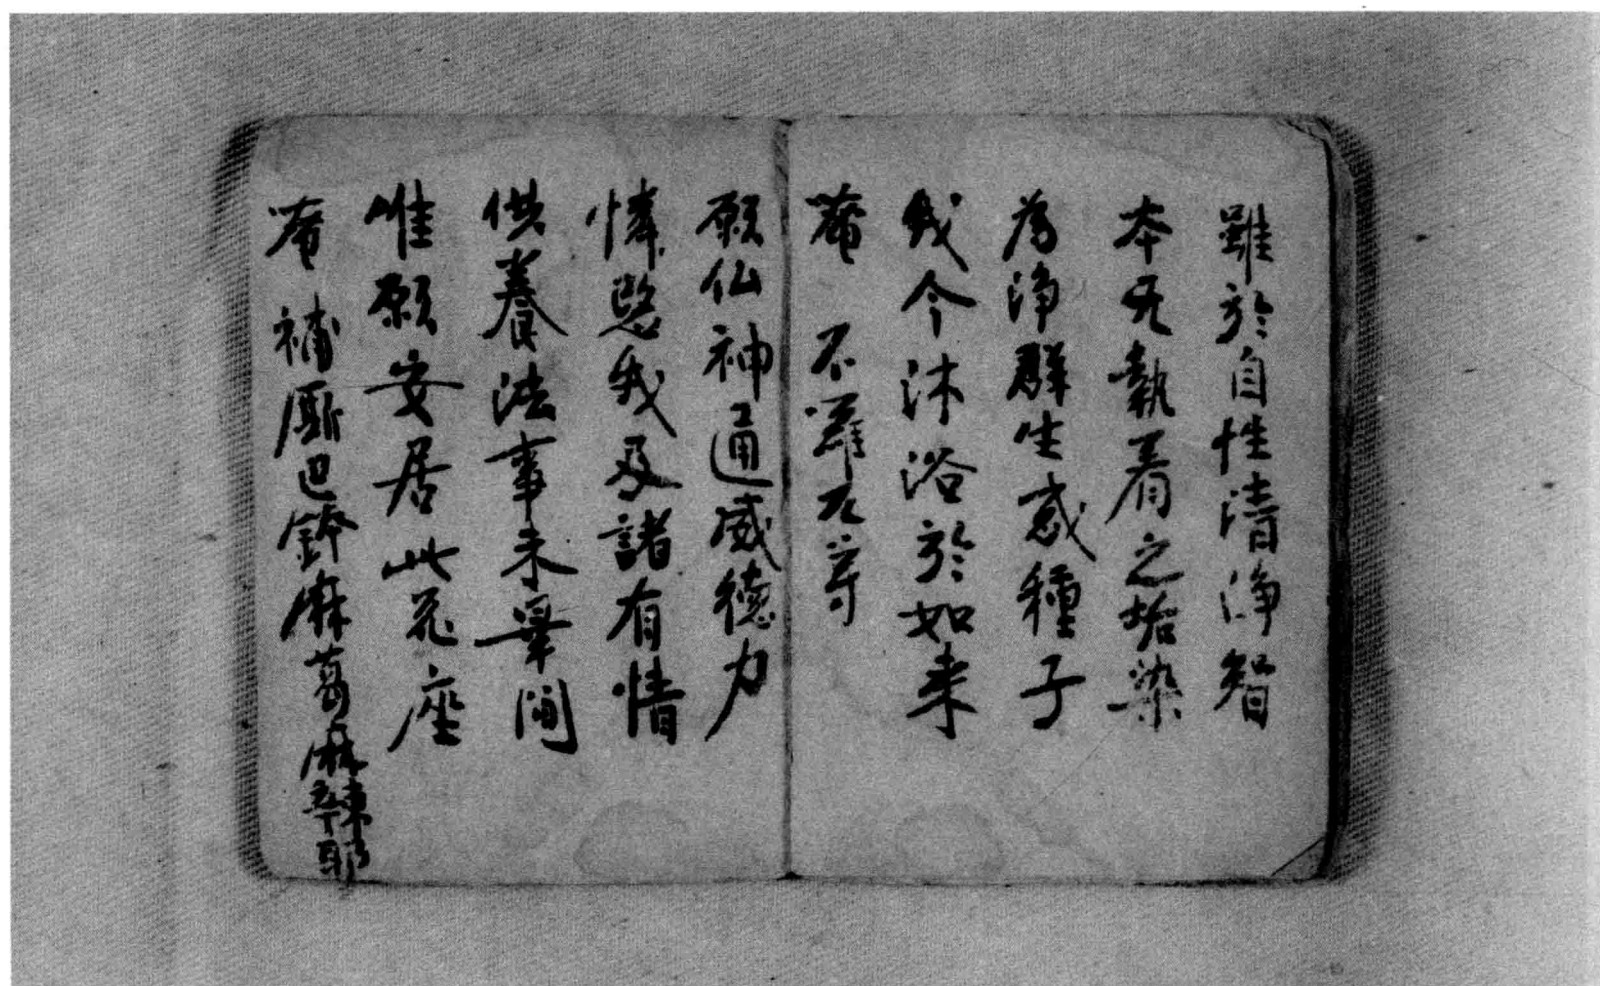 雖於自性清淨智
本无執着之垢染
為淨群生惑種子
我今沐浴於如来
唵 不囉
願仏神通威德力
憐愍我及諸有情
供養法事未畢間
惟願安居此花座
唵 補厮巴鉢麻葛麻辣耶